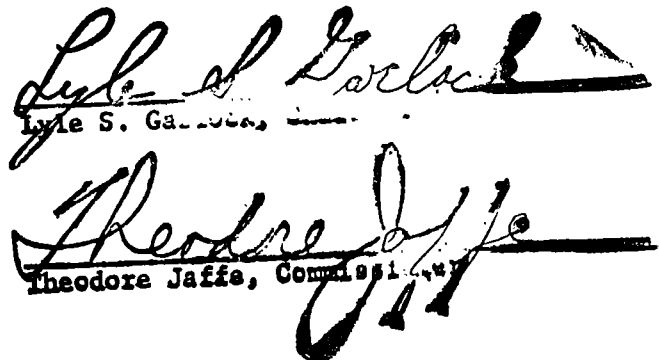 Lyle S Garlock
Lyle S. Garlock,
Theodore Jaffe
Theodore Jaffe, Commissioner